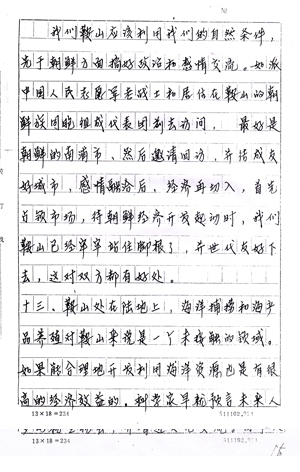 我们鞍山应该利用我们的自然条件，
先于朝鲜方面搞好政治和感情交流。如派
中国人民志愿军老战士和居住在鞍山的朝
鲜族同胞组成代表团到去访问，　最好是
朝鲜的南浦市，然后邀请回访，并结成友
好城市，感情融洽后，经济再切入，首先
占领市场，待朝鲜经济开发起动时，我们
鞍山已经牢牢站住脚根了，并世代友好下
去，这对双方都有好处。
十三、鞍山处在陆地上，海洋捕捞和海产
品养殖对鞍山来说是一个未接触的领域。
如果能合理地开发利用海洋资源也是有很
高的经济效益的，科学家早就预言未来人
13×18=234
13×18=234